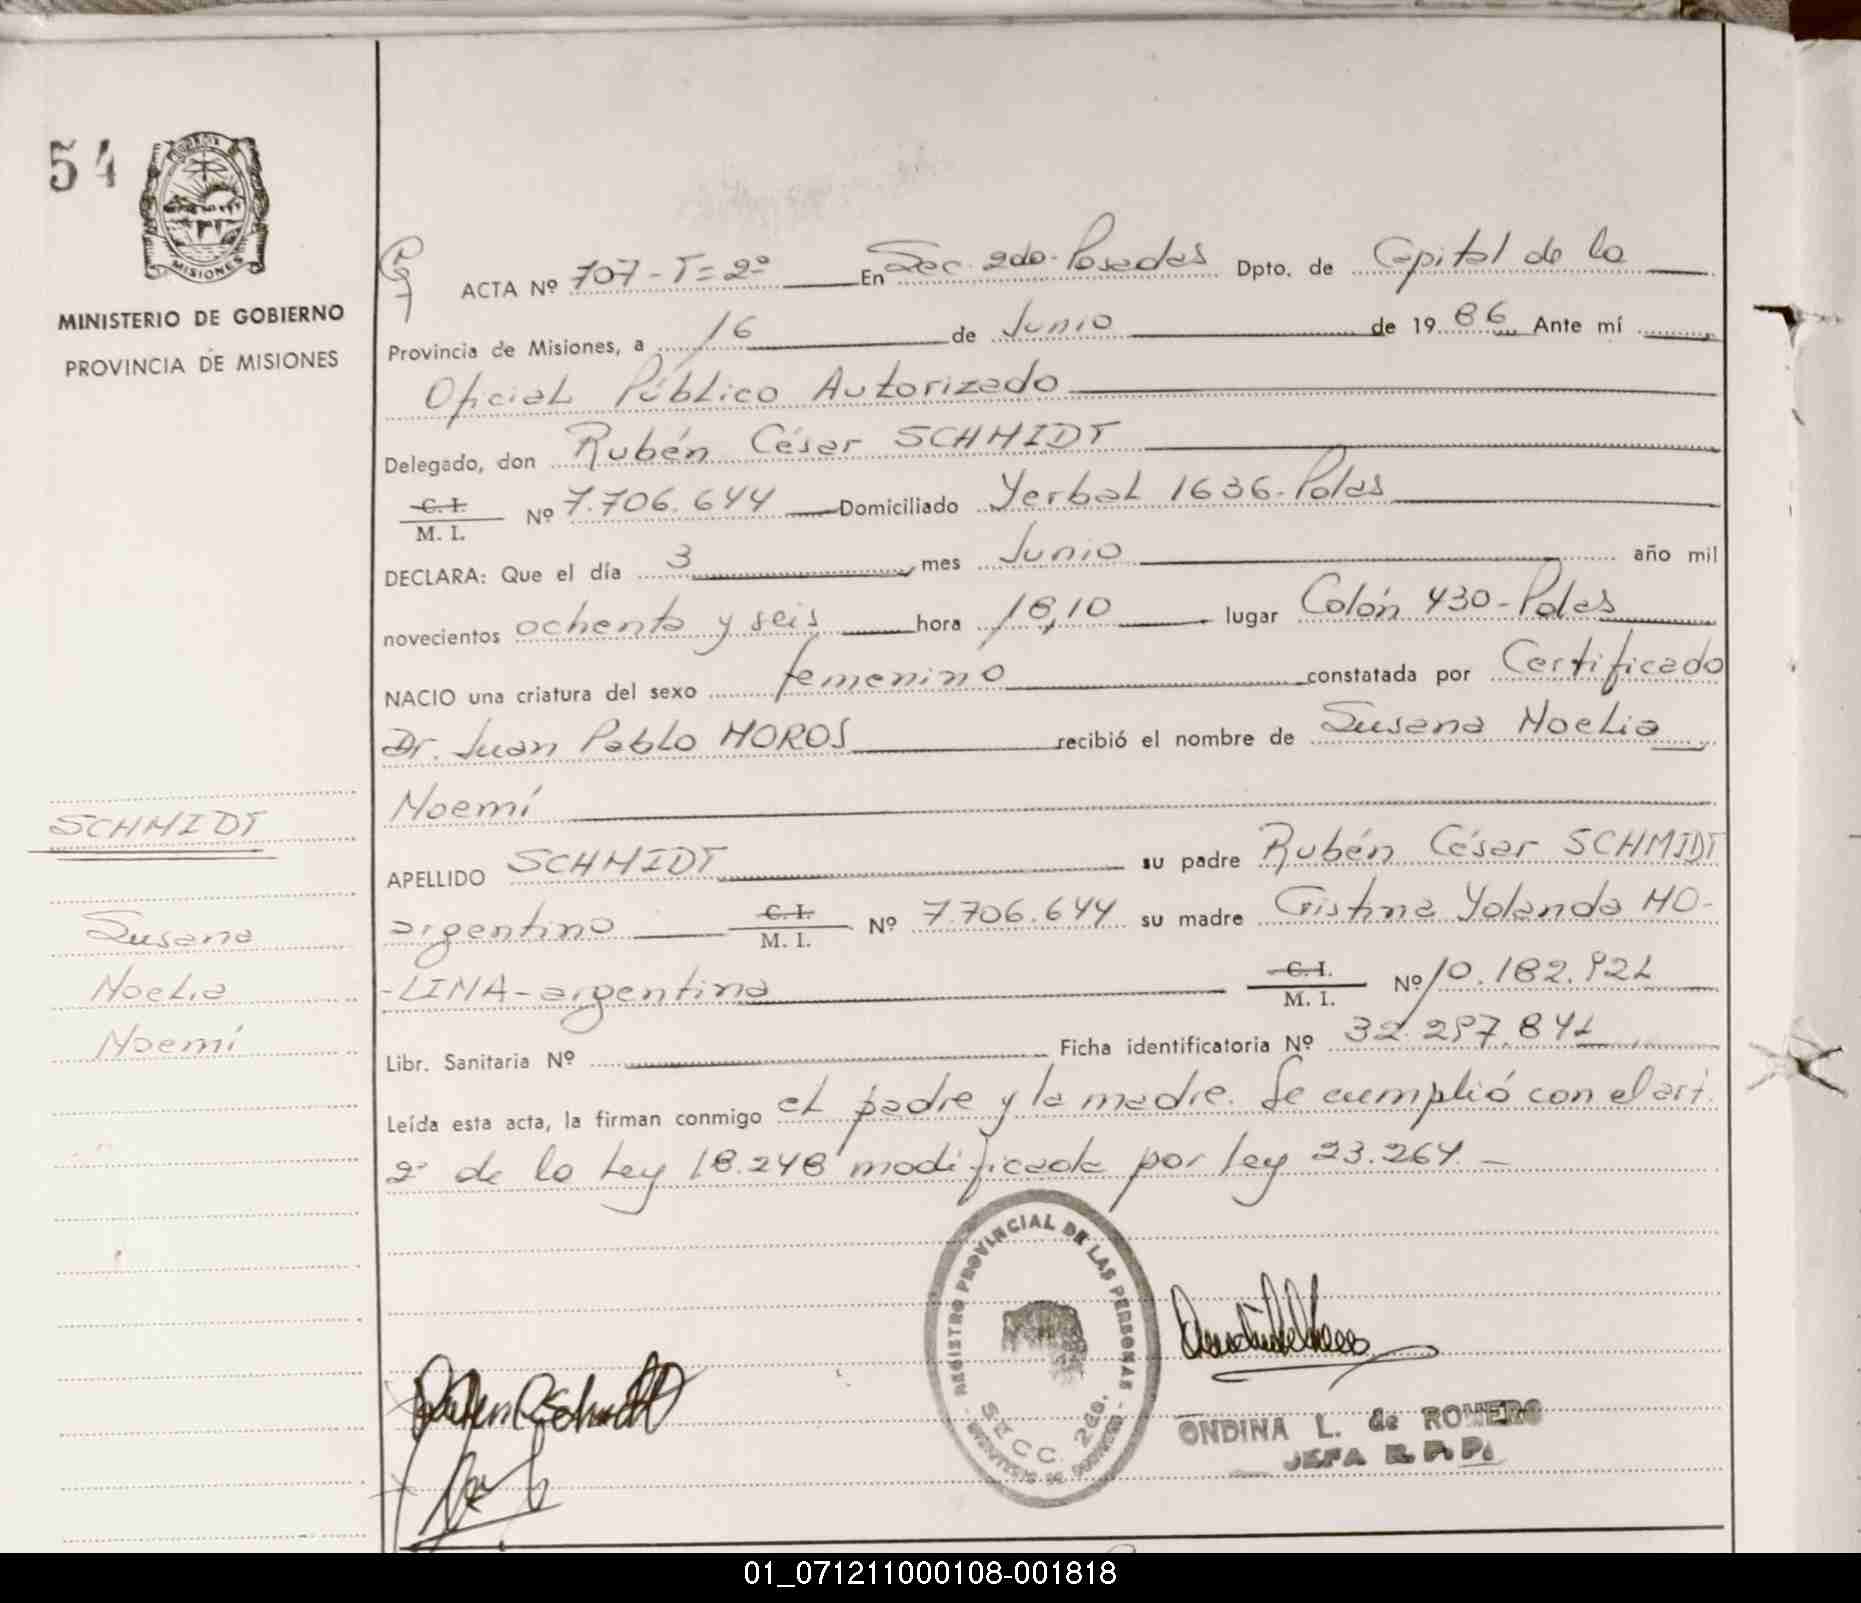 54
MISIONES
MINISTERIO DE GOBIERNO
PROVINCIA DE MISIONES
ACTA Nº 707 - T = 2º En Sec. 2do - Posadas Dpto. de Capital de la
Provincia de Misiones, a 16 de Junio de 1986 Ante mí
Oficial Público Autorizado
Delegado, don Rubén César SCHMIDT
C. I.
M. I. Nº 7.706.644 Domiciliado Yerbal 1636 - Pdas
DECLARA: Que el día 3 mes Junio año mil
novecientos ochenta y seis hora 18,10 lugar Colón 430 - Pdas
NACIO una criatura del sexo femenino constatada por Certificado
Dr. Juan Pablo MOROS recibió el nombre de Susana Noelia
Noemí
SCHMIDT
Susana
Noelia
Noemí
APELLIDO SCHMIDT su padre Rubén César SCHMIDT
argentino C. I. M. I. Nº 7.706.644 su madre Cristina Yolanda MO-
-LINA - argentina C. I. M. I. Nº 10.182.921
Libr. Sanitaria Nº Ficha identificatoria Nº 32.297.841
Leída esta acta, la firman conmigo el padre y la madre. Se cumplió con el art.
2º de la Ley 18.248 modificada por ley 23.264. -
REGISTRO PROVINCIAL DE LAS PERSONAS
SECC. 2da.
ONDINA L. de ROMERO
JEFA R. P. P.
01_071211000108-001818